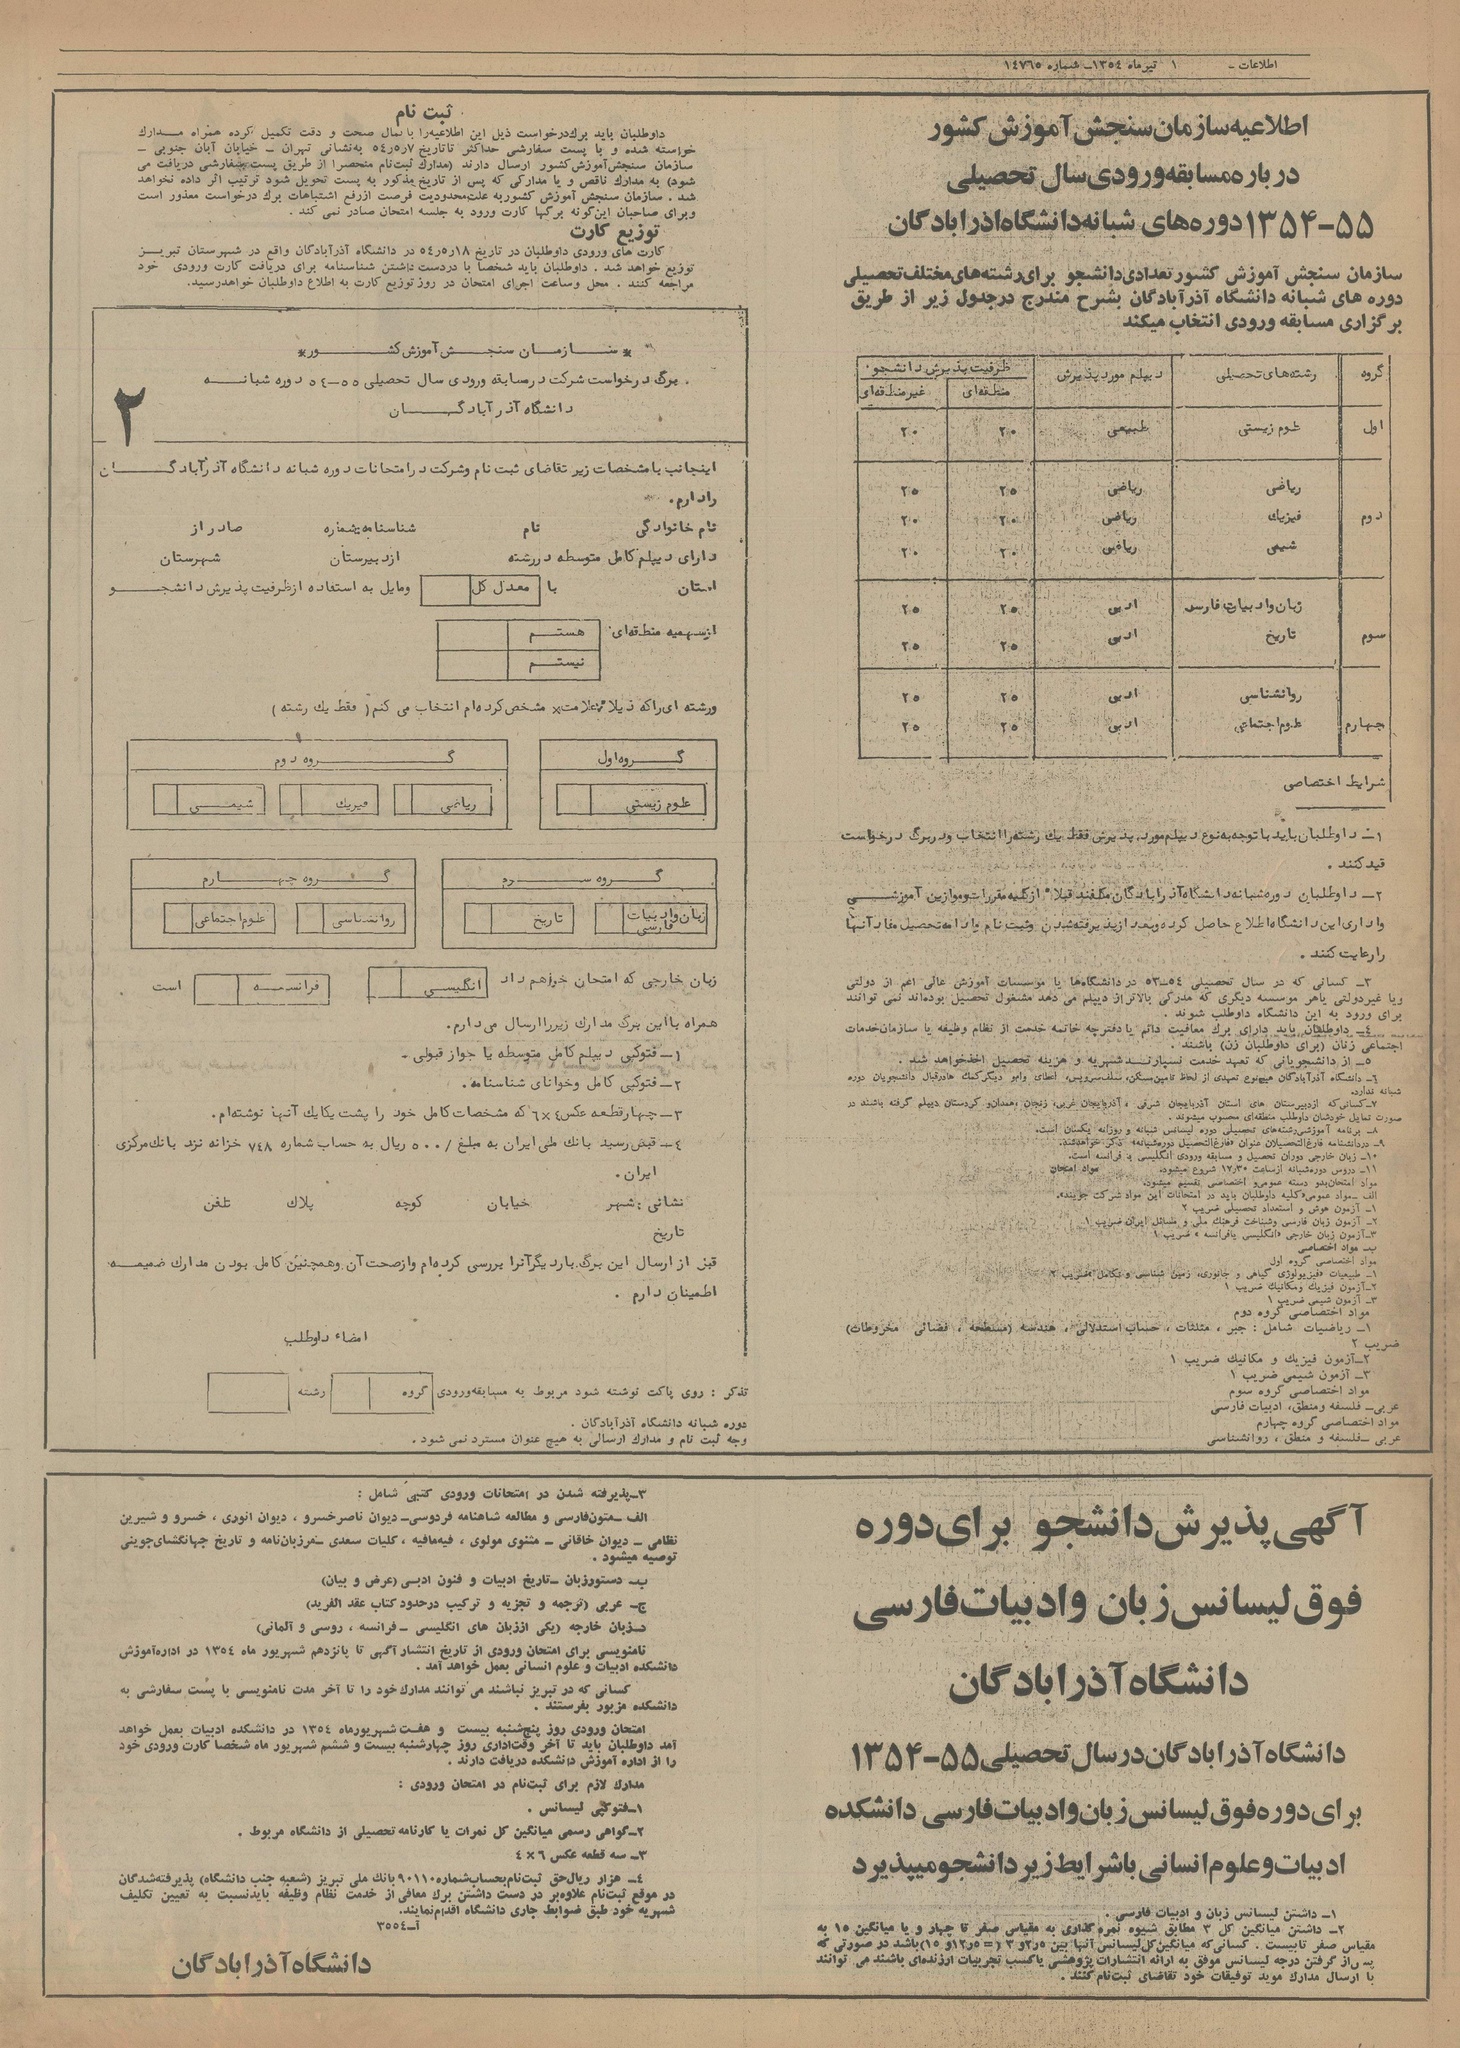 اطلاعات - ۱ تیرماه ۱۳۵۴ - شماره ۱۴۷۶۵
اطلاعیه سازمان سنجش آموزش کشور
درباره مسابقه ورودی سال تحصیلی
۱۳۵۴-۵۵ دوره های شبانه دانشگاه اذرابادگان
سازمان سنجش آموزش کشور تعدادی دانشجو برای رشته های مختلف تحصیلی
دوره های شبانه دانشگاه آذرآبادگان بشرح مندرج درجدول زیر از طریق
برگزاری مسابقه ورودی انتخاب میکند
گروه رشته های تحصیلی دیپلم مورد پذیرش ظرفیت پذیرش دانشجو
منطقه ای غیرمنطقه ای
اول علوم زیستی طبیعی ۲۰ ۲۰
ریاضی ریاضی ۲۵ ۲۵
دوم فیزیك ریاضی ۲۰ ۲۰
شیمی ریاضی ۲۰ ۲۰
زبان وادبیات فارسی ادبی ۲۵ ۲۵
سوم تاریخ ادبی ۲۵ ۲۵
روانشناسی ادبی ۲۵ ۲۵
چهارم علوم اجتماعی ادبی ۲۵ ۲۵
شرایط اختصاصی
۱- داوطلبان باید با توجه به نوع دیپلم مورد پذیرش فقط یك رشته را انتخاب ودر برگ درخواست
قید کنند .
۲- داوطلبان دوره شبانه دانشگاه آذرابادگان مکلفند قبلا" از کلیه مقررات وموازین آموزشی
واداری این دانشگاه اطلاع حاصل کرده وبعد از پذیرفته شدن وثبت نام وادامه تحصیل مفاد آنها
رارعایت کنند .
۳- کسانی که در سال تحصیلی ۵۴-۵۳ در دانشگاهها یا موسسات آموزش عالی اعم از دولتی
ویا غیردولتی یاهر موسسه دیگری که مدرکی بالاتر از دیپلم می دهد مشغول تحصیل بوده اند نمی توانند
برای ورود به این دانشگاه داوطلب شوند .
۴- داوطلبان باید دارای برك معافیت دائم یا دفترچه خاتمه خدمت از نظام وظیفه یا سازمان خدمات
اجتماعی زنان (برای داوطلبان زن) باشند .
۵- از دانشجویانی که تعهد خدمت نسپارند شهریه و هزینه تحصیل اخذ خواهد شد .
۶- دانشگاه آذرآبادگان هیچ نوع تعهدی از لحاظ تامین مسکن، سلف سرویس، اعطای وام و دیگر کمك ها درقبال دانشجویان دوره
شبانه ندارد.
۷- کسانی که ازدبیرستان های استان آذربایجان شرقی ، آذربایجان غربی، زنجان ، همدان و کردستان دیپلم گرفته باشند در
صورت تمایل خودشان داوطلب منطقه ای محسوب میشوند .
۸- برنامه آموزشی رشته های تحصیلی دوره لیسانس شبانه و روزانه یکسان است.
۹- دردانشنامه فارغ التحصیلان عنوان «فارغ التحصیل دوره شبانه» ذکر خواهدشد.
۱۰- زبان خارجی دوران تحصیل و مسابقه ورودی انگلیسی یا فرانسه است.
۱۱- دروس دوره شبانه ازساعت ۱۷٫۳۰ شروع میشود.
مواد امتحان
مواد امتحان بدو دسته عمومی و اختصاصی تقسیم میشود.
الف - مواد عمومی «کلیه داوطلبان باید در امتحانات این مواد شرکت جویند».
۱- آزمون هوش و استعداد تحصیلی ضریب ۲
۲- آزمون زبان فارسی وشناخت فرهنگ ملی و مسائل ایران ضریب ۱
۳- آزمون زبان خارجی «انگلیسی یافرانسه» ضریب ۱
ب- مواد اختصاصی
مواد اختصاصی گروه اول
۱- طبیعیات «فیزیولوژی گیاهی و جانوری، زمین شناسی و تکامل» ضریب ۲
۲- آزمون فیزیك ومکانیك ضریب ۱
۳- آزمون شیمی ضریب ۱
مواد اختصاصی گروه دوم
۱- ریاضیات شامل : جبر ، مثلثات ، حساب استدلالی ، هندسه (مسطحه ، فضائی مخروطات)
ضریب ۲
۲- آزمون فیزیك و مکانیك ضریب ۱
۳- آزمون شیمی ضریب ۱
مواد اختصاصی گروه سوم
عربی - فلسفه ومنطق، ادبیات فارسی
مواد اختصاصی گروه چهارم
عربی - فلسفه و منطق ، روانشناسی
ثبت نام
داوطلبان باید برك درخواست ذیل این اطلاعیه را با کمال صحت و دقت تکمیل کرده همراه مدارك
خواسته شده و با پست سفارشی حداکثر تاتاریخ ۵۴٫۵٫۷ به نشانی تهران - خیابان آبان جنوبی -
سازمان سنجش آموزش کشور ارسال دارند (مدارك ثبت نام منحصرا از طریق پست سفارشی دریافت می
شود) به مدارك ناقص و یا مدارکی که پس از تاریخ مذکور به پست تحویل شود ترتیب اثر داده نخواهد
شد . سازمان سنجش آموزش کشور به علت محدودیت فرصت ازرفع اشتباهات برك درخواست معذور است
وبرای صاحبان این گونه برگها کارت ورود به جلسه امتحان صادر نمی کند .
توزیع کارت
کارت های ورودی داوطلبان در تاریخ ۵۴٫۵٫۱۸ در دانشگاه آذرآبادگان واقع در شهرستان تبریز
توزیع خواهد شد . داوطلبان باید شخصا با دردست داشتن شناسنامه برای دریافت کارت ورودی خود
مراجعه کنند . محل وساعت اجرای امتحان در روز توزیع کارت به اطلاع داوطلبان خواهدرسید.
* سازمان سنجش آموزش کشور *
برگ درخواست شرکت در مسابقه ورودی سال تحصیلی ۵۵-۵۴ دوره شبانه
دانشگاه آذرآبادگان
۲
اینجانب با مشخصات زیر تقاضای ثبت نام وشرکت در امتحانات دوره شبانه دانشگاه آذرآبادگان
رادارم.
نام خانوادگی نام شناسنامه شماره صادر از
دارای دیپلم کامل متوسطه در رشته از دبیرستان شهرستان
استان با معدل کل ومایل به استفاده ازظرفیت پذیرش دانشجو
ازسهمیه منطقه ای هستم
نیستم
ورشته ای راکه ذیلا با علامت × مشخص کرده ام انتخاب می کنم ( فقط یك رشته )
گروه اول گروه دوم
علوم زیستی ریاضی فیزیك شیمی
گروه سوم گروه چهارم
زبان وادبیات فارسی تاریخ روانشناسی علوم اجتماعی
زبان خارجی که امتحان خواهم داد انگلیسی فرانسه است
همراه با این برگ مدارك زیر را ارسال می دارم.
۱- فتوکپی دیپلم کامل متوسطه یا جواز قبولی .
۲- فتوکپی کامل وخوانای شناسنامه.
۳- چهارقطعه عکس ۴×۶ که مشخصات کامل خود را پشت یکایك آنها نوشته ام.
۴- قبض رسید بانك ملی ایران به مبلغ /۵۰۰ ریال به حساب شماره ۷۴۸ خزانه نزد بانك مرکزی
ایران.
نشانی : شهر خیابان کوچه پلاك تلفن
تاریخ
قبل از ارسال این برگ بار دیگر آنرا بررسی کرده ام وازصحت آن وهمچنین کامل بودن مدارك ضمیمه
اطمینان دارم .
امضاء داوطلب
تذکر : روی پاکت نوشته شود مربوط به مسابقه ورودی گروه رشته
دوره شبانه دانشگاه آذرآبادگان .
وجه ثبت نام و مدارك ارسالی به هیچ عنوان مسترد نمی شود .
آگهی پذیرش دانشجو برای دوره
فوق لیسانس زبان وادبیات فارسی
دانشگاه آذرابادگان
دانشگاه آذرابادگان درسال تحصیلی ۵۵-۱۳۵۴
برای دوره فوق لیسانس زبان وادبیات فارسی دانشکده
ادبیات وعلوم انسانی باشرایط زیر دانشجو میپذیرد
۱- داشتن لیسانس زبان و ادبیات فارسی .
۲- داشتن میانگین کل ۳ مطابق شیوه نمره گذاری به مقیاس صفر تا چهار و یا میانگین ۱۵ به
مقیاس صفر تابیست . کسانی که میانگین کل لیسانس آنها بین ۲٫۵ و ۳ (= ۱۲٫۵ و ۱۵) باشد در صورتی که
پس از گرفتن درجه لیسانس موفق به ارائه انتشارات پژوهشی یا کسب تجربیات ارزنده ای باشند می توانند
با ارسال مدارك موید توفیقات خود تقاضای ثبت نام کنند .
۳- پذیرفته شدن در امتحانات ورودی کتبی شامل :
الف - متون فارسی و مطالعه شاهنامه فردوسی - دیوان ناصرخسرو ، دیوان انوری ، خسرو و شیرین
نظامی - دیوان خاقانی - مثنوی مولوی ، فیه مافیه ، کلیات سعدی - مرزبان نامه و تاریخ جهانگشای جوینی
توصیه میشود .
ب- دستورزبان - تاریخ ادبیات و فنون ادبی (عرض و بیان)
ج- عربی (ترجمه و تجزیه و ترکیب درحدود کتاب عقد الفرید)
د- زبان خارجه (یکی اززبان های انگلیسی - فرانسه ، روسی و آلمانی)
نامنویسی برای امتحان ورودی از تاریخ انتشار آگهی تا پانزدهم شهریور ماه ۱۳۵۴ در اداره آموزش
دانشکده ادبیات و علوم انسانی بعمل خواهد آمد .
کسانی که در تبریز نباشند می توانند مدارك خود را تا آخر مدت نامنویسی با پست سفارشی به
دانشکده مزبور بفرستند .
امتحان ورودی روز پنجشنبه بیست و هفت شهریورماه ۱۳۵۴ در دانشکده ادبیات بعمل خواهد
آمد داوطلبان باید تا آخر وقت اداری روز چهارشنبه بیست و ششم شهریور ماه شخصا کارت ورودی خود
را از اداره آموزش دانشکده دریافت دارند .
مدارك لازم برای ثبت نام در امتحان ورودی :
۱- فتوکپی لیسانس .
۲- گواهی رسمی میانگین کل نمرات یا کارنامه تحصیلی از دانشگاه مربوط .
۳- سه قطعه عکس ۶ × ۴
۴- هزار ریال حق ثبت نام بحساب شماره ۹۰۱۱۰ بانك ملی تبریز (شعبه جنب دانشگاه) پذیرفته شدگان
در موقع ثبت نام علاوه بر در دست داشتن برك معافی از خدمت نظام وظیفه باید نسبت به تعیین تکلیف
شهریه خود طبق ضوابط جاری دانشگاه اقدام نمایند.
آ-۳۵۵۴
دانشگاه آذرابادگان